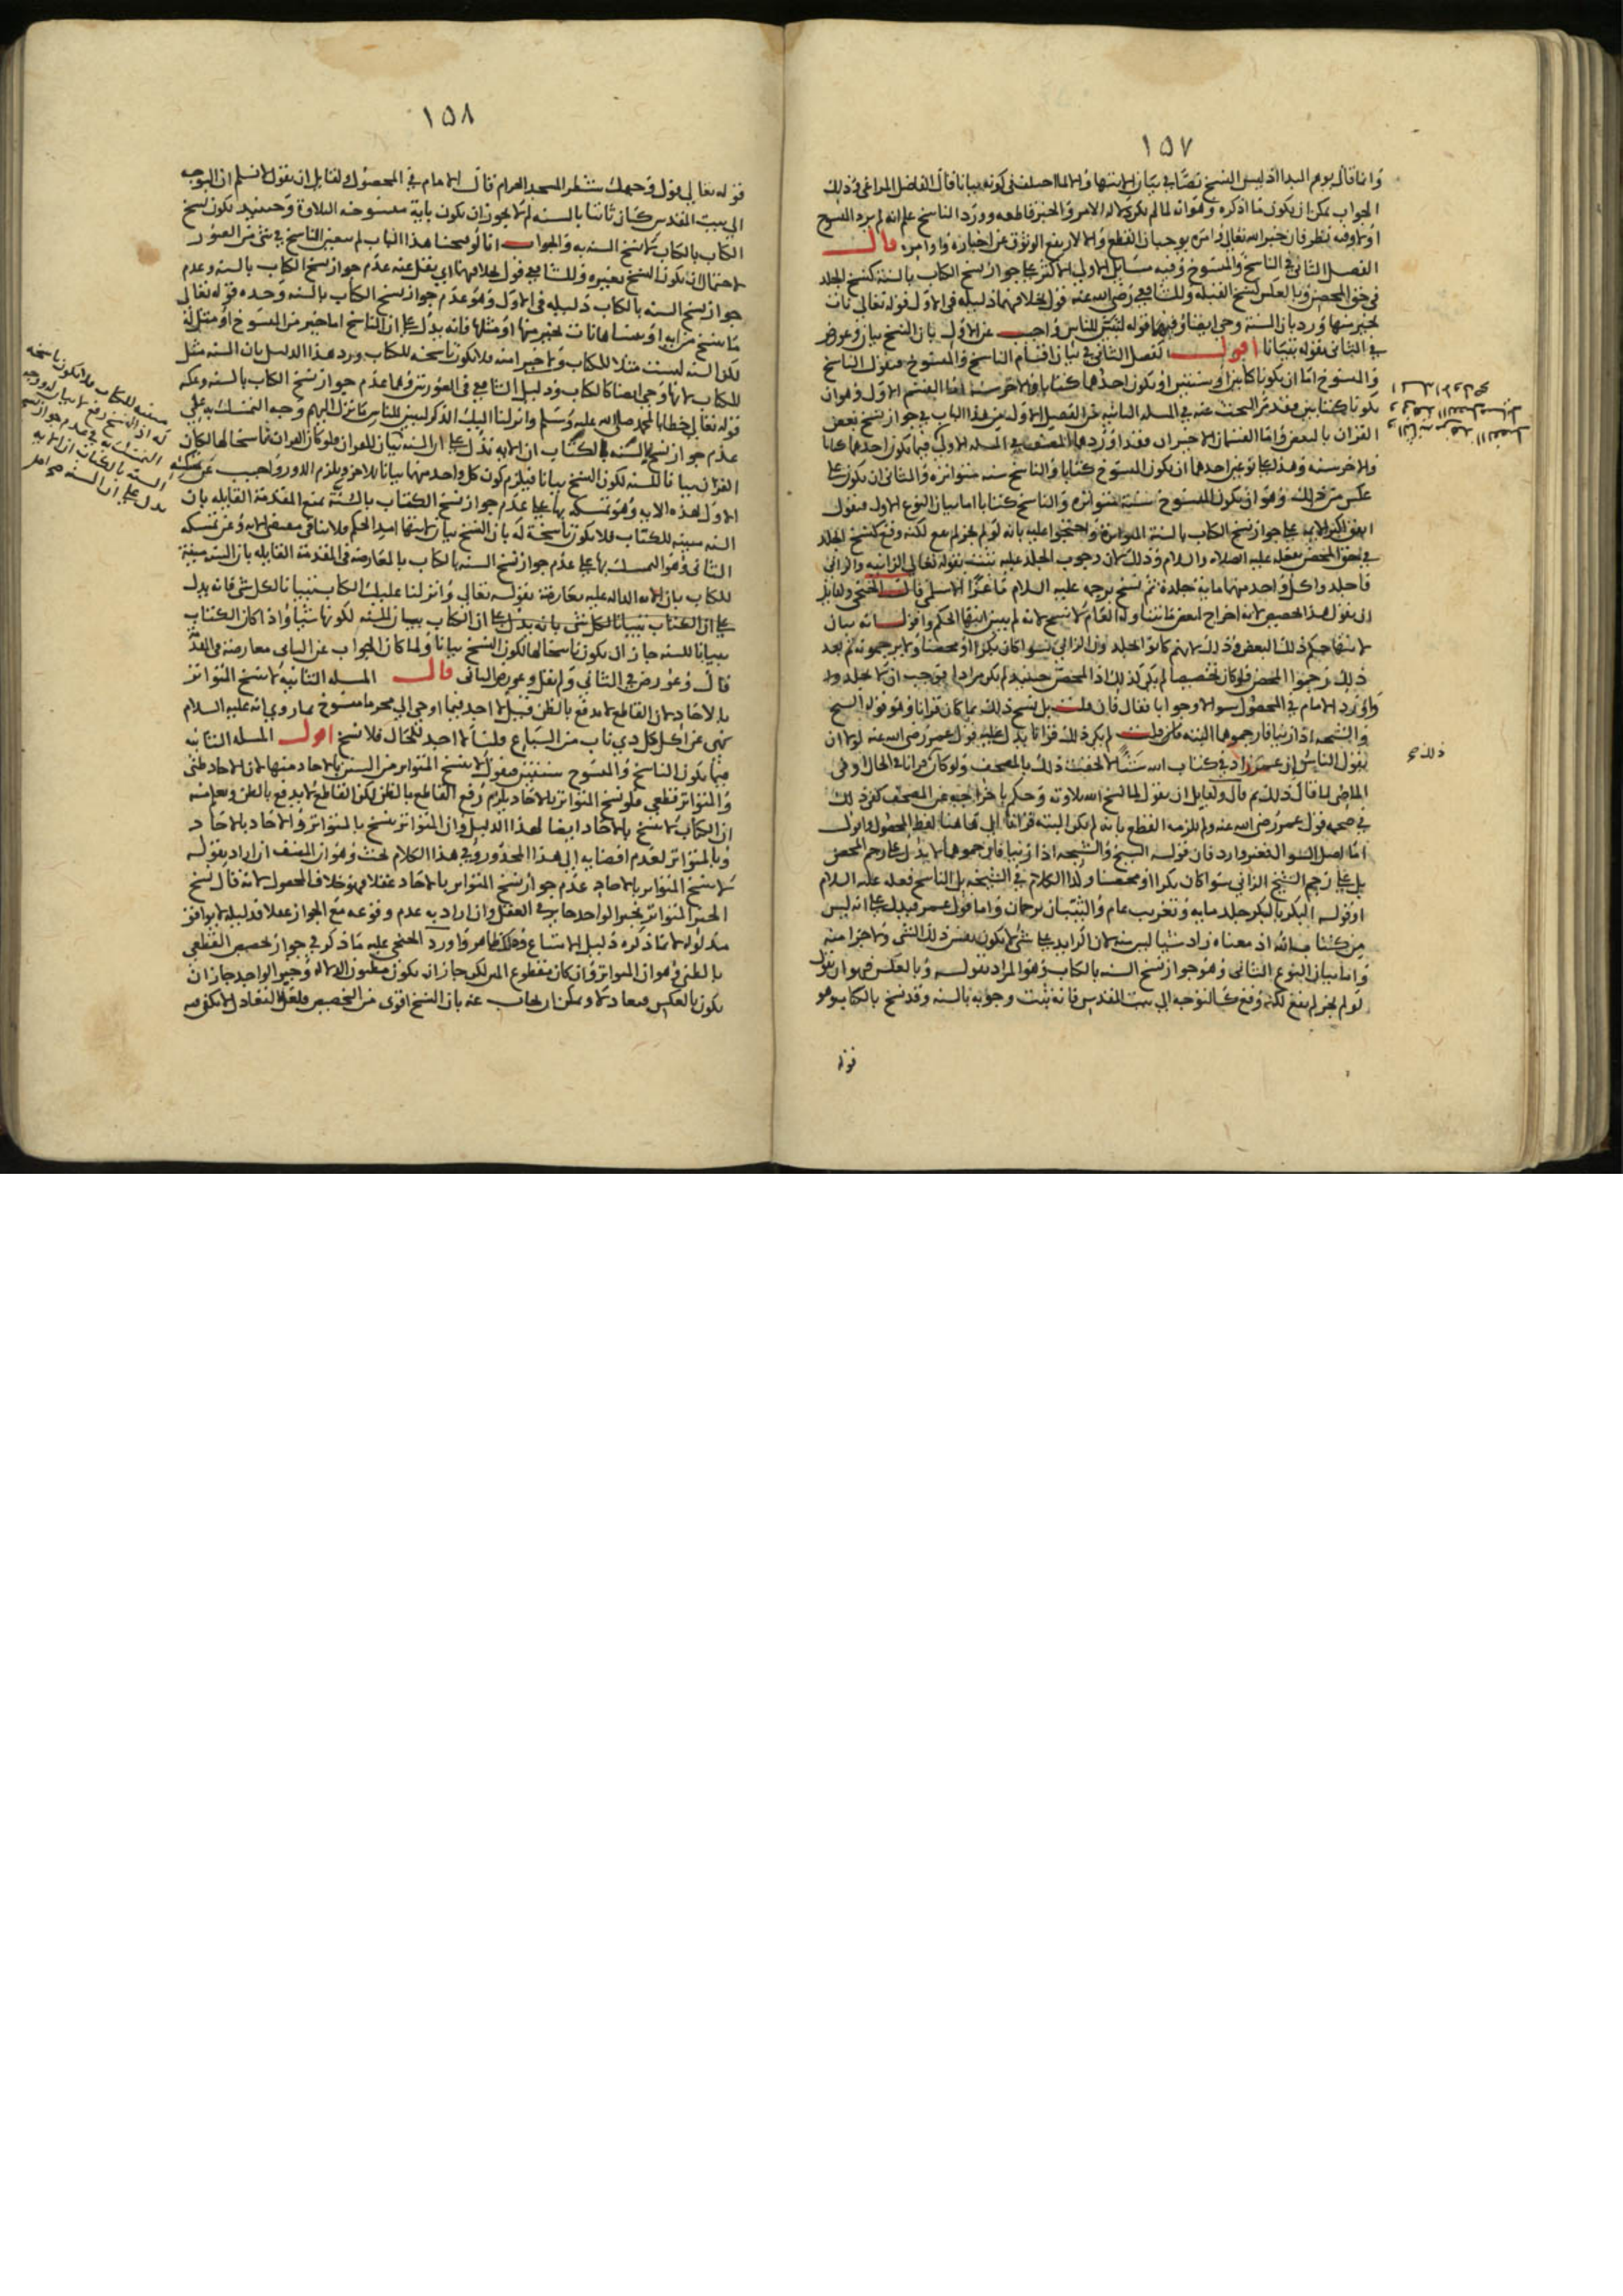 ١٥٧
وانما قال يوهم البدا اذ ليس النسخ نصا في بيان الانتها والا لما اختلف في كونه بيانا قال الفاضل المراغي في ذلك
الجواب يمكن ان يكون ما اذكره وهو انه لما لم يكن دلالة الامر والخبر قاطعه وورد الناسخ علم انه لم يرد النسخ
اولا وفيه نظر فان خبر الله تعالى وامره يوجبان القطع والا لارتفع الوثوق عن اخباره واوامره قال
الفصل الثاني في الناسخ والمنسوخ وفيه مسايل الاولى الاكثر على جواز نسخ الكتاب بالسنة كنسخ الجلد
في حق المحصن وبالعكس كنسخ القبله وللشافعي رضي الله عنه قول بخلافهما دليله في الاول قوله تعالى نات
بخير منها ورد بان السنة وحي ايضا وفيهما قوله لتبين للناس واجيب عن الاول بان النسخ بيان وعورض
في الثاني بقوله تبيانا اقول الفصل الثاني في بيان اقسام الناسخ والمنسوخ فنقول الناسخ
والمنسوخ اما ان يكونا كتابين او سنتين او يكون احدهما كتابا والاخر سنة اما القسم الاول وهو ان
يكونا كتابين فقد مر البحث عنه في المسله الثانيه من الفصل الاول من هذا الباب في جواز نسخ بعض
القران بالبعض واما القسمان الاخيران فقد اوردهما المصنف في المسله الاولى فيما يكون احدهما كتابا
والاخر سنه وهذا على نوعين احدهما ان يكون المنسوخ كتابا والناسخ سنه متواتره والثاني ان يكون على
عكس من ذلك وهو ان يكون المنسوخ سنة متواتره والناسخ كتابا اما بيان النوع الاول فنقول
اتفق اكثر الايمه على جواز نسخ الكتاب بالسنة المتواترة واحتجوا عليه بانه لو لم يجز لم يقع لكنه وقع كنسخ الجلد
في حق المحصن بفعله عليه الصلاه والسلام وذلك لان وجوب الجلد عليه يثبت بقوله تعالى الزانيه والزاني
فاجلدوا كل واحد منهما ماية جلدة ثم نسخ برجمه عليه السلام ماعزا الاسلمي قال الخنجي ولقايل
ان يقول هذا تخصيص لانه اخراج لبعض ما يتناوله العام لا نسخ لانه لم يبين انتها الحكم واقول انه بيان
لانتها حكم ذلك البعض وذلك لانهم كانوا يجلدون الزاني سوا كان بكرا او محصنا ولا يرجمونه ثم بعد
ذلك رجموا المحصن فلو كان تخصيصا لم يكن كذلك اذ المحصن حينيذ لم يكن مرادا فوجب ان لا يجلدوه
واورد الامام في المحصول سوالا وجوابا فقال فان قلت بل نسخ ذلك بما كان قرانا وهو قوله الشيخ
والشيخه اذا زنيا فارجموهما البته قلت لم يكن ذلك قرانا يدل عليه قول عمر رضي الله عنه لولا ان
يقول الناس ان عمر زاد في كتاب الله شيئا لالحقت ذلك بالمصحف ولو كان قرانا في الحال او في
الماضي لما قال ذلك ثم قال ولقايل ان يقول لما نسخ الله تلاوته وحكم باخراجه عن المصحف كفى ذلك
في صحه قول عمر رضي الله عنه ولم يلزمه القطع بانه لم يكن البته قرانا الى هاهنا لفظ المحصول واقول
اما اصل السوال فغير وارد فان قوله الشيخ والشيخه اذا زنيا فارجموهما لا يدل على رجم المحصن
بل على رجم الشيخ الزاني سوا كان بكرا او محصنا وكذا الكلام في الشيخه بل الناسخ فعله عليه السلام
او قوله البكر بالبكر جلد مايه وتغريب عام والثيبان يرجمان واما قول عمر فيدل على انه ليس
من كتاب الله اذ معناه زاد شيئا ليس منه لان الزايد على شي لا يكون نفس ذلك الشي ولا جزا منه
واما بيان النوع الثاني وهو جواز نسخ السنه بالكتاب وهو المراد بقوله وبالعكس فهو ان نقول
لو لم يجز لم يقع لكنه وقع كالتوجه الى بيت المقدس فانه ثبت وجوبه بالسنه وقد نسخ بالكتاب وهو
قوله
ذلك
١٥٨
قوله تعالى فول وجهك شطر المسجد الحرام قال الامام في المحصول ولقايل ان يقول لا نسلم ان التوجه
الى بيت المقدس كان ثابتا بالسنه لم لا يجوز ان يكون باية منسوخه التلاوة وحينيذ يكون نسخ
الكتاب بالكتاب لا نسخ السنه به والجواب انا لو صححنا هذا الباب لم يتعين الناسخ في شي من الصور
لاحتمال ان يكون النسخ بغيره وللشافعي قول بخلافهما اي ينقل عنه عدم جواز نسخ الكتاب بالسنه وعدم
جواز نسخ السنه بالكتاب دليله في الاول وهو عدم جواز نسخ الكتاب بالسنه وحده قوله تعالى
ما ننسخ من ايه او ننساها نات بخير منها او مثلها فانه يدل على ان الناسخ اما خير من المنسوخ او مثل له
لكن السنه ليست مثلا للكتاب ولا خيرا منه فلا تكون ناسخه للكتاب ورد هذا الدليل بان السنه مثل
للكتاب لانها وحي ايضا كالكتاب ودليل الشافعي في الصورتين وهما عدم جواز نسخ الكتاب بالسنه وعكسه
قوله تعالى خطابا لمحمد صلى الله عليه وسلم وانزلنا اليك الذكر لتبين للناس ما نزل اليهم وجه التمسك به على
عدم جواز نسخ السنه بالكتاب ان الايه تدل على ان السنه بيان للقران فلو كان القران ناسخا لها لكان
القران بيانا للسنه لكون النسخ بيانا فيلزم كون كل واحد منهما بيانا للاخر ويلزم الدور واجيب عن تمسكه
الاول بهذه الايه وهو تمسكه بها على عدم جواز نسخ الكتاب بالسنة بمنع المقدمة القايله بان
السنه مبينه للكتاب فلا تكون ناسخة له بان النسخ بيان لانتها امد الحكم فلا ينافي مقتضى الايه وعن تمسكه
الثاني وهو التمسك بها على عدم جواز نسخ السنه بالكتاب بالمعارضه في المقدمة القايله بان السنه مبينة
للكتاب بان الايه الداله عليه معارضة بقوله تعالى وانزلنا عليك الكتاب تبيانا لكل شي فانه يدل
على ان الكتاب تبيانا لكل شي بانه يدل على ان الكتاب يبين السنه لكونها شيا واذا كان الكتاب
بيانا للسنه جاز ان يكون ناسخا لها لكون النسخ بيانا ولما كان الجواب عن الثاني معارضة في المقدمة
قال وعورض في الثاني ولم يقل وعورض الثاني قال المسله الثانيه لا ينسخ المتواتر
بالاحاد لان القاطع لا يدفع بالظن قيل لا اجد فيما اوحي الي محرما منسوخ بما روي انه عليه السلام
نهى عن اكل كل ذي ناب من السباع قلنا لا اجد للحال فلا نسخ اقول المسله الثانيه
فيما يكون الناسخ والمنسوخ سنتين فنقول لا ينسخ المتواتر من السنن بالاحاد منها لان الاحاد ظني
والمتواتر قطعي فلو نسخ المتواتر بالاحاد يلزم رفع القاطع بالظن لكن القاطع لا يدفع بالظن ويعلم منه
ان الكتاب لا ينسخ بالاحاد ايضا لهذا الدليل وان المتواتر ينسخ بالمتواتر والاحاد بالاحاد
وبالمتواتر لعدم افضايه الى هذا المحذور وفي هذا الكلام بحث وهو ان المصنف ان اراد بقوله
لا ينسخ المتواتر بالاحاد عدم جواز نسخ المتواتر بالاحاد عقلا فهو خلاف المحصول لانه قال نسخ
الخبر المتواتر بخبر الواحد جايز في العقل وان اراد به عدم وقوعه مع الجواز عقلا فدليله لا يوافق
مدلوله لان ما ذكره دليل الامتناع وذلك ظاهر واورد الخنجي عليه ما ذكر في جواز تخصيص القطعي
بالظني وهو ان المتواتر وان كان مقطوع المتن لكن جاز ان يكون مظنون الدلاله وخبر الواحد جاز ان
يكون بالعكس فتعادلا ويمكن ان يجاب عنه بان النسخ اقوى من التخصيص فلعل التعادل لا يكفي فيه
مبينه للكتاب فلا تكون ناسخه
له اذ النسخ رفع لا بيان ووجه
التمسك به في عدم جواز نسخ
السنه بالكتاب ان الايه
تدل على ان السنه صح اصل